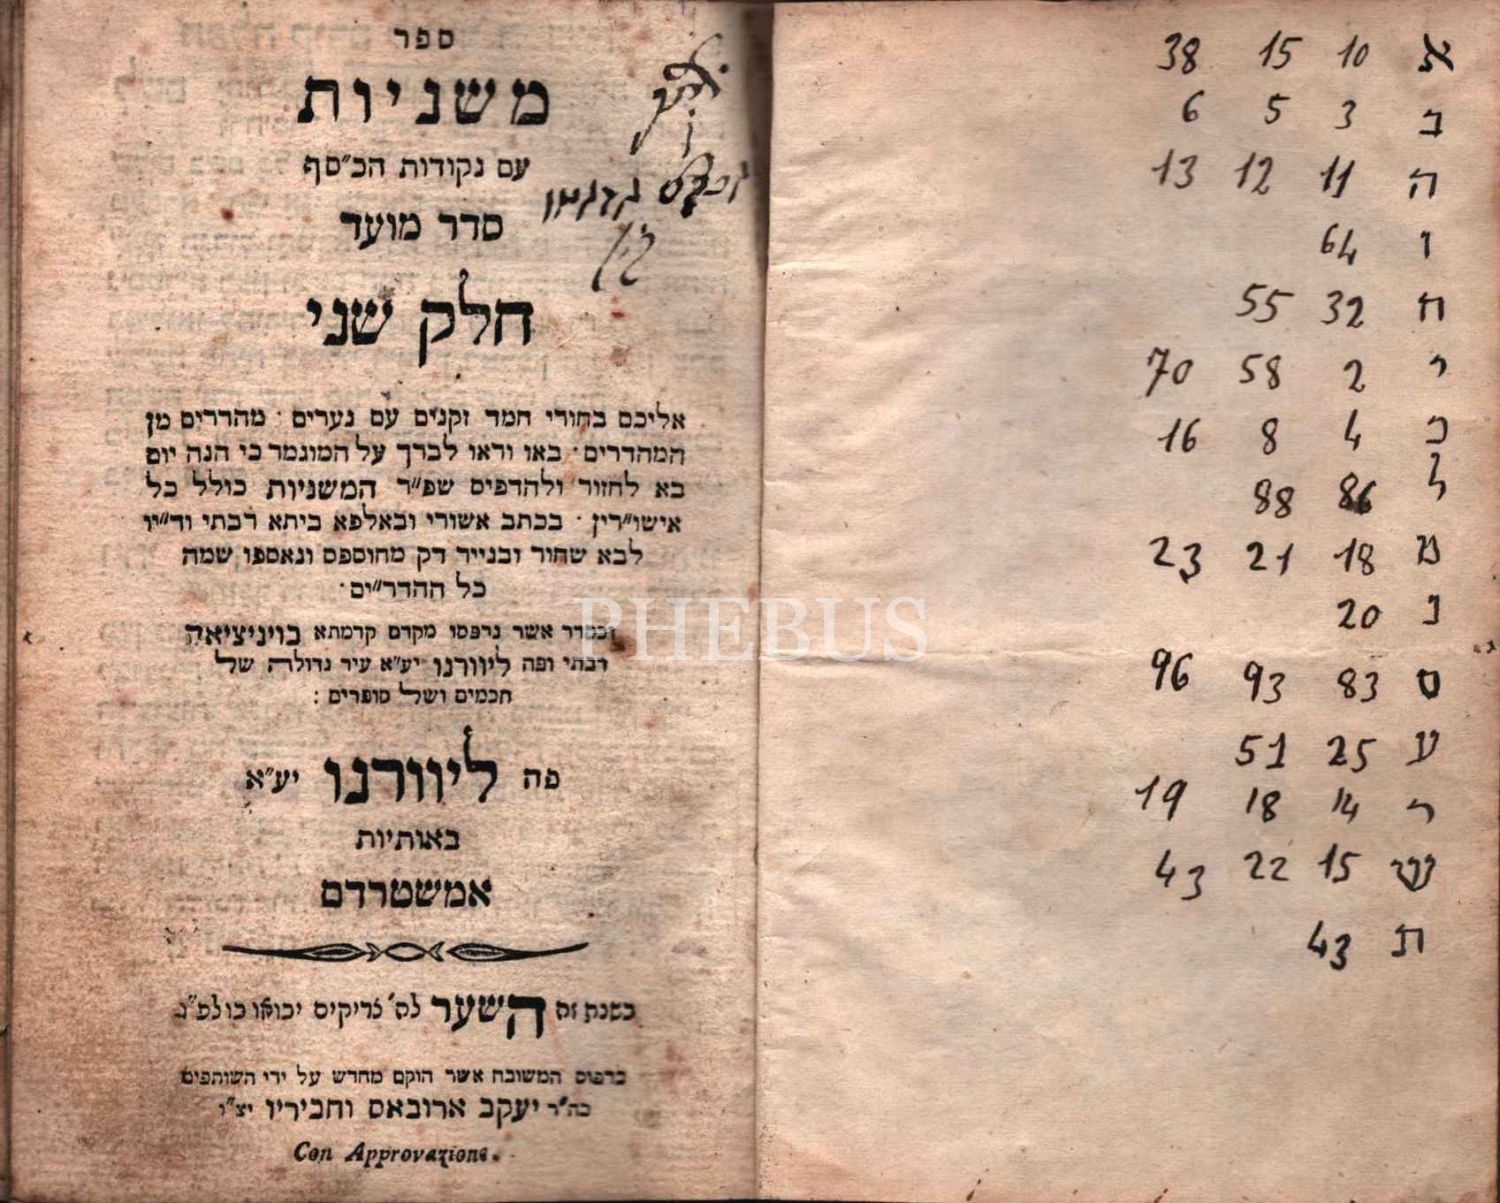 ספר
משניות
עם נקודות הכ"סף
סדר מועד
חלק שני
אליכם בחורי חמד זקנים עם נערים · מהדרים מן
המהדרים · באו וראו לברך על המוגמר כי הנה יום
בא לחזור ולהדפיס שפ"ר המשניות כולל כל
אישו"רין · בכתב אשורי ובאלפא ביתא רבתי וד"יו
לבא שחור ובנייר דק מחוספס ונאספו שמה
כל ההדר"ים ·
וכסדר אשר נדפסו מקדם קדמתא בויניציאה
רבתי ופה ליוורנו יע"א עיר גדולה של
חכמים ושל סופרים :
פה ליוורנו יע"א
באותיות
אמשטרדם
בשנת זה השער לה' צדיקים יבואו בו לפ"ג
בדפוס המשובח אשר הוקם מחדש על ידי השותפים
כה"ר יעקב ארובאס וחביריו יצ"ו
Con Approvazione.
א 10 15 38
ב 3 5 6
ה 11 12 13
ו 64
ח 32 55
י 2 58 70
כ 4 8 16
ל 86 88
מ 18 21 23
נ 20
ס 83 93 96
ע 25 51
ר 14 18 19
ש 15 22 43
ת 43
PHEBUS